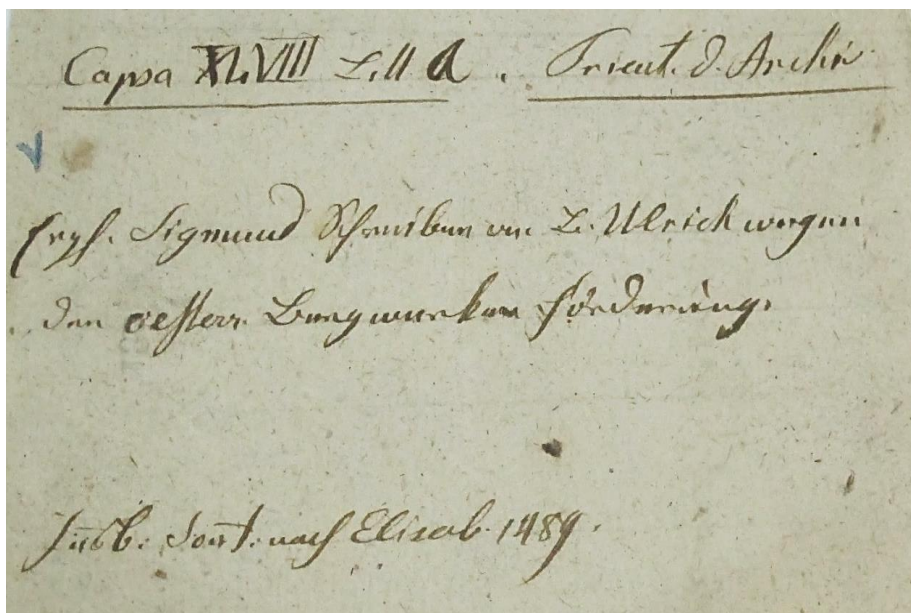 Capsa XLVIII Litt a. Trient. d. Archiv.
Erzh. Sigmund Schreiben an B. Ulrich wegen
den oesterr. Bergwerken förderung.
Insb. Sont. nach Elisab. 1489.